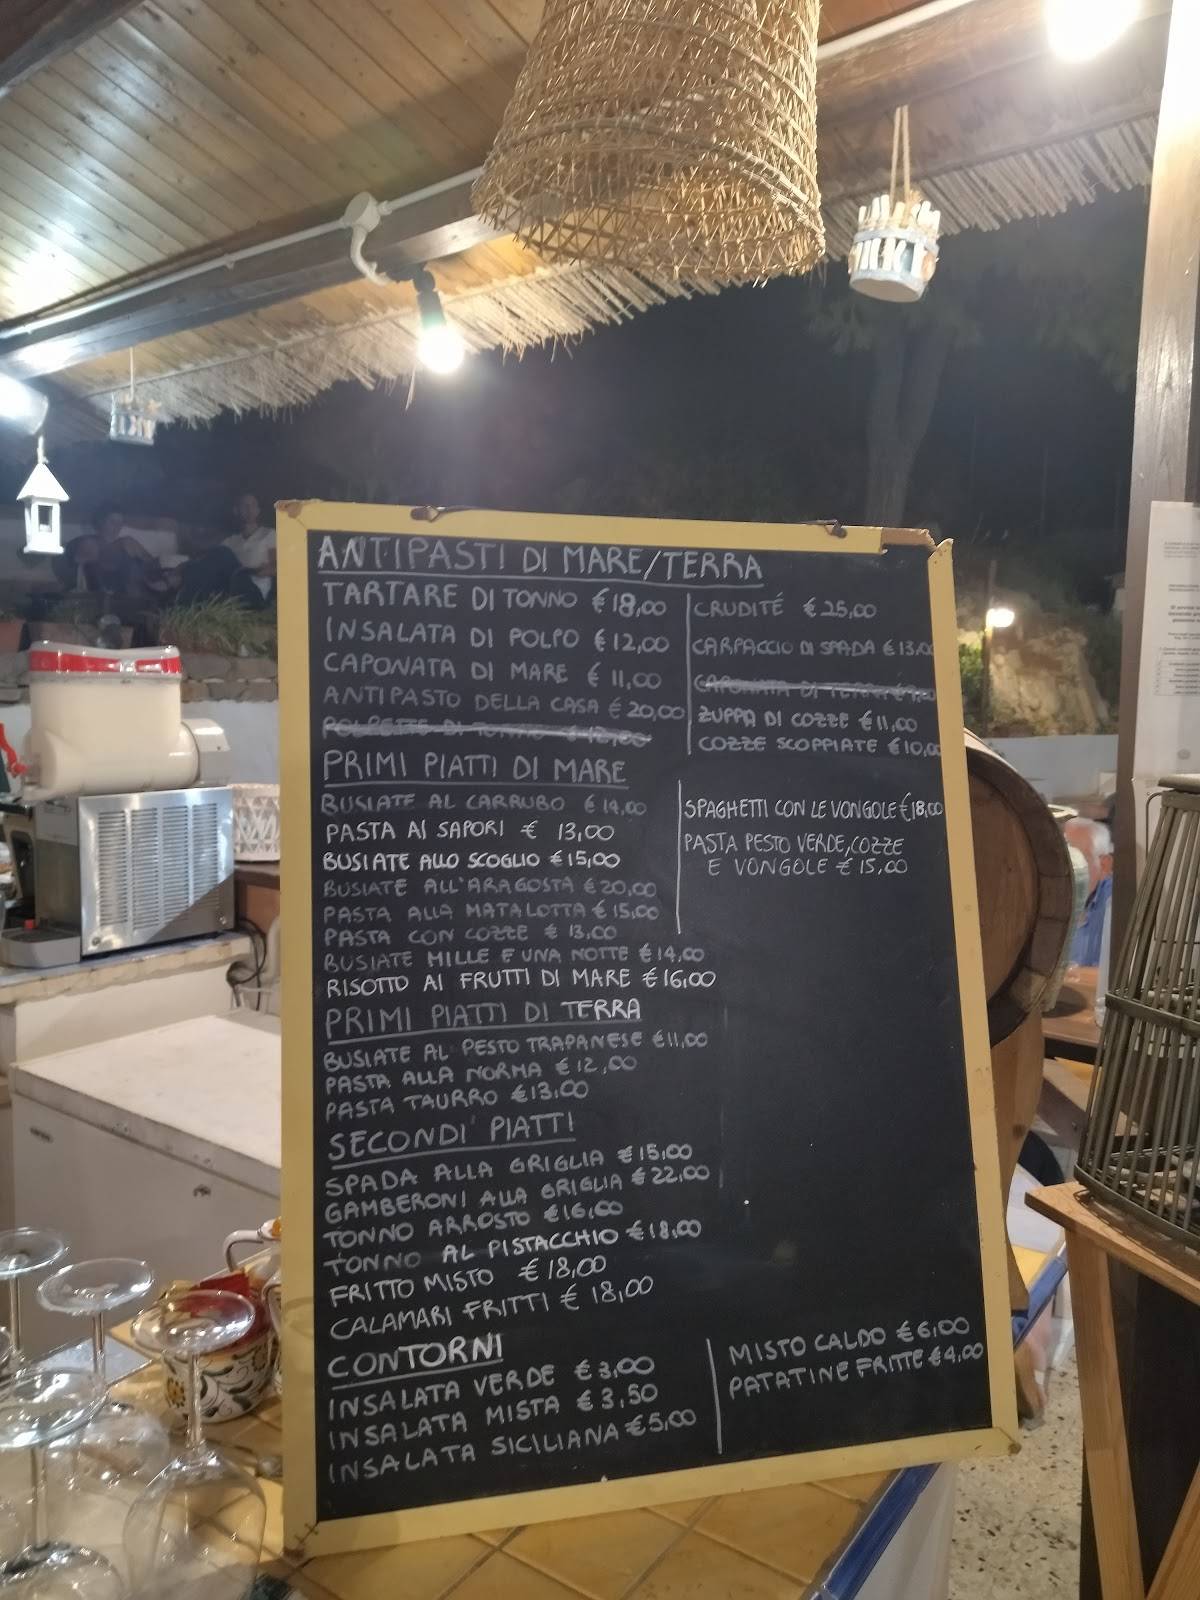 ANTIPASTI DI MARE/TERRA
TARTARE DI TONNO €18,00
INSALATA DI POLPO €12,00
CAPONATA DI MARE € 11,00
ANTIPASTO DELLA CASA €20,00
POLPETTE DI TONNO € 12,00
CRUDITÉ €25,00
CARPACCIO DI SPADA €13,00
CAPONATA DI
ZUPPA DI COZZE €11,00
COZZE SCOPPIATE €10,00
PRIMI PIATTI DI MARE
BUSIATE AL CARRUBO €14,00
PASTA AI SAPORI € 13,00
BUSIATE ALLO SCOGLIO €15,00
BUSIATE ALL'ARAGOSTA €20,00
PASTA ALLA MATALOTTA €15,00
PASTA CON COZZE € 13,00
BUSIATE MILLE E UNA NOTTE €14,00
RISOTTO AI FRUTTI DI MARE €16,00
SPAGHETTI CON LE VONGOLE €18,00
PASTA PESTO VERDE, COZZE
E VONGOLE €15,00
PRIMI PIATTI DI TERRA
BUSIATE AL PESTO TRAPANESE €11,00
PASTA ALLA NORMA €12,00
PASTA TAURRO €13,00
SECONDI PIATTI
SPADA ALLA GRIGLIA €15,00
GAMBERONI ALLA GRIGLIA €22,00
TONNO ARROSTO €16,00
TONNO AL PISTACCHIO €18,00
FRITTO MISTO €18,00
CALAMARI FRITTI € 18,00
CONTORNI
INSALATA VERDE €3,00
INSALATA MISTA €3,50
INSALATA SICILIANA €5,00
MISTO CALDO €6,00
PATATINE FRITTE €4,00